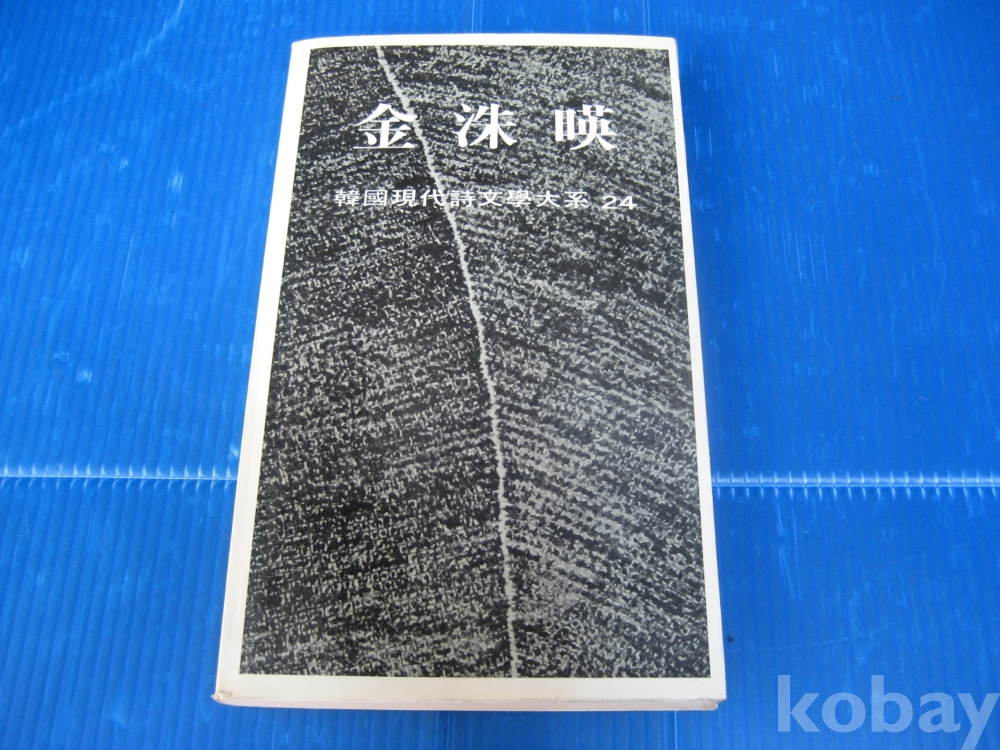 金洙暎
韓國現代詩文學大系 24
kobay